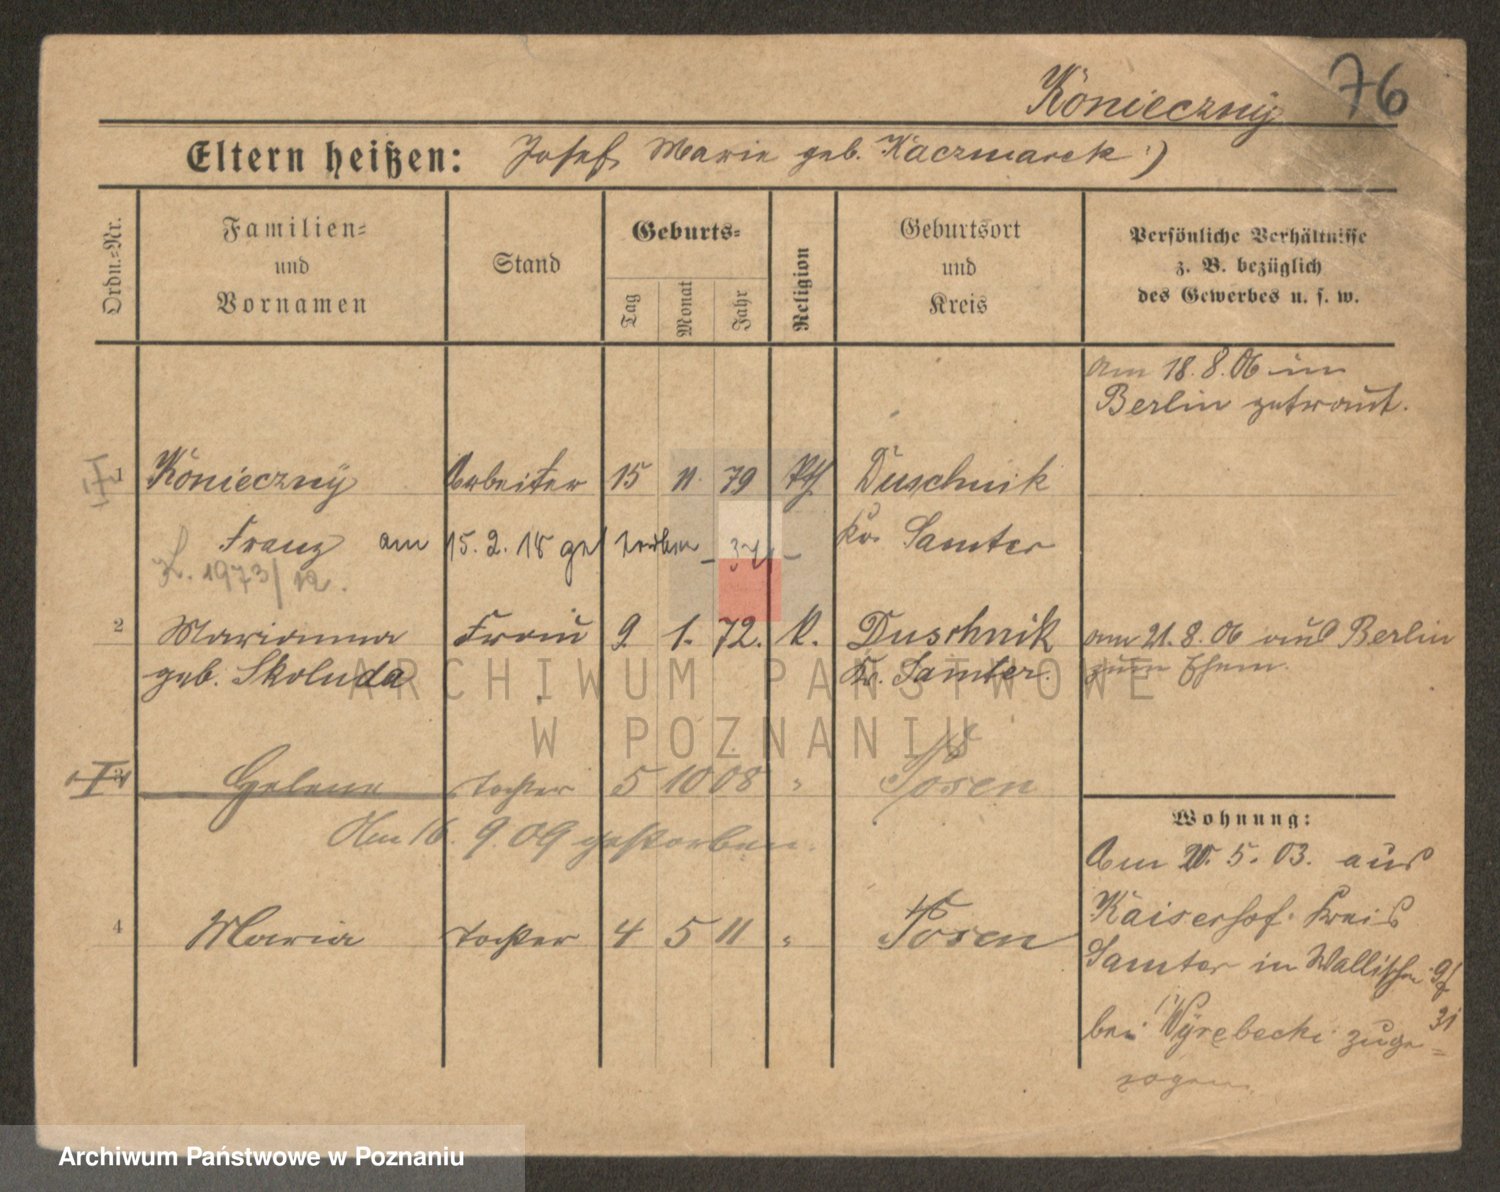 76
Konieczny
Eltern heißen: Josef, Marie geb. Kaczmarek
Ordn.-Nr.
Familien-
und
Vornamen
Stand
Geburts-
Tag
Monat
Jahr
Religion
Geburtsort
und
Kreis
Persönliche Verhältnisse
z. B. bezüglich
des Gewerbes u. s. w.
am 18.8.06 in
Berlin getraut.
1 Konieczny Arbeiter 15 11. 79 Duschnik
Franz am 15.2.18 gestorben Kr. Samter
1973/12.
2 Marianna Frau 9 1. 72. K. Duschnik am 21.8.06 aus Berlin
geb. Skoluda Kr. Samter. zum Ehem.
3 Helene Tochter 5 10 08 " Posen
Am 16. 9. 09 gestorben.
4 Maria Tochter 4 5 11 " Posen
Wohnung:
Am 20. 5. 03. aus
Kaiserhof Kreis
Samter in Wallischei
bei Wyrebecki zuge=
zogen.
ARCHIWUM PAŃSTWOWE
W POZNANIU
Archiwum Państwowe w Poznaniu